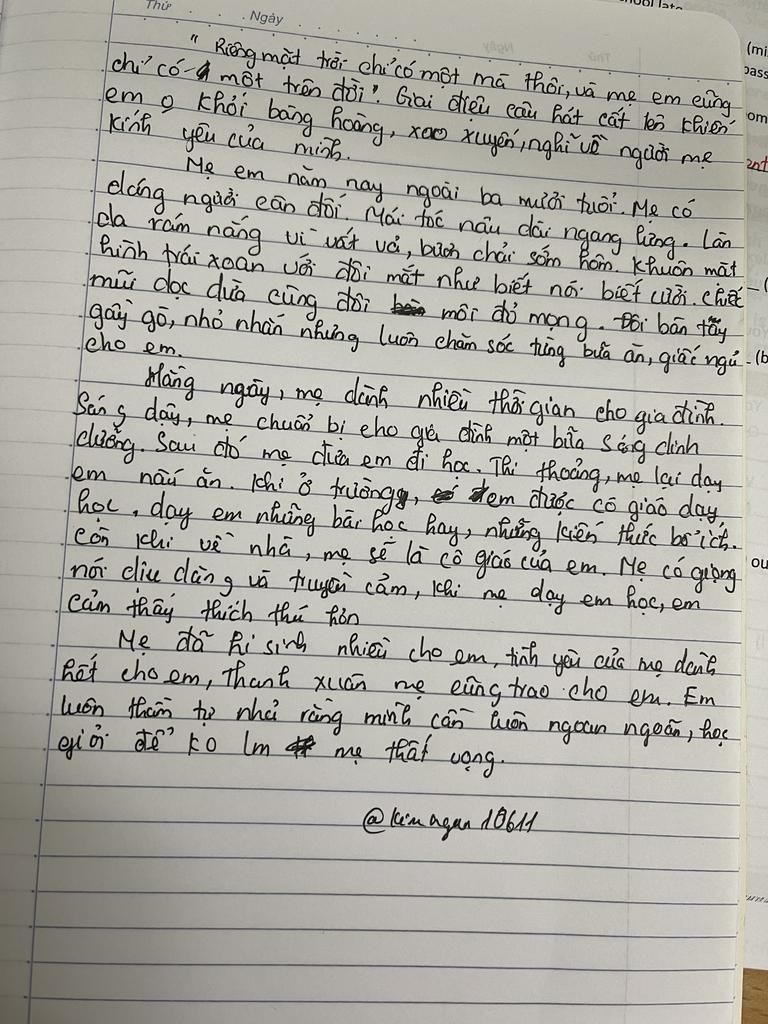 Thứ
Ngày
" Riêng mặt trời chỉ có một mà thôi, và mẹ em cũng
chỉ có một trên đời". Giai điệu câu hát cất lên khiến
em o khỏi bâng khoâng, xao xuyến, nghĩ về người mẹ
kính yêu của mình.
Mẹ em năm nay ngoài ba mươi tuổi. Mẹ có
dáng người cân đối. Mái tóc nâu dài ngang lưng. Làn
da rám nắng vì vất vả, bươn chải sớm hôm. Khuôn mặt
hình trái xoan với đôi mắt như biết nói biết cười. Chiếc
mũi dọc dừa cùng đôi môi đỏ mọng. Đôi bàn tay
gầy gò, nhỏ nhắn nhưng luôn chăm sóc từng bữa ăn, giấc ngủ
cho em.
Hằng ngày, mẹ dành nhiều thời gian cho gia đình.
Sáng dậy, mẹ chuẩn bị cho gia đình một bữa sáng dinh
dưỡng. Sau đó mẹ đưa em đi học. Thi thoảng, mẹ lại dạy
em nấu ăn. Khi ở trường, em được cô giáo dạy
học, dạy em những bài học hay, những kiến thức bổ ích.
Còn khi về nhà, mẹ sẽ là cô giáo của em. Mẹ có giọng
nói dịu dàng và truyền cảm, khi mẹ dạy em học, em
cảm thấy thích thú hơn
Mẹ đã hi sinh nhiều cho em, tình yêu của mẹ dành
hết cho em, Thanh xuân mẹ cũng trao cho em. Em
luôn thầm tự nhủ rằng mình cần luôn ngoan ngoãn, học
giỏi để ko lm mẹ thất vọng.
@kimngan10611